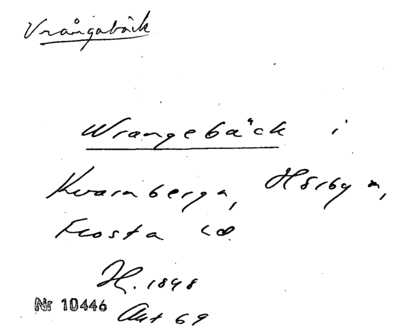 Vrångabäck
Wrangebäck i
Kvarnberga, Hörby n,
Frosta hd.
H. 1898
Nr 10446
Akt 69